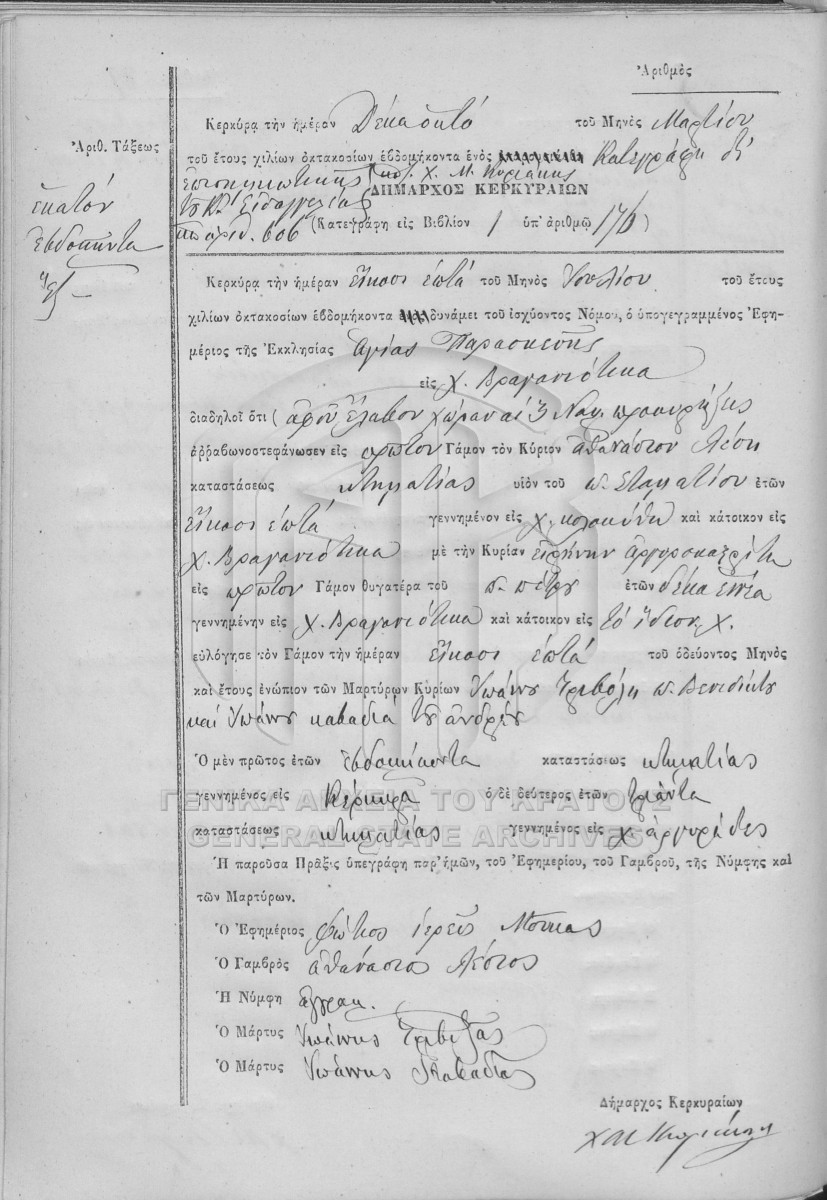 Ἀριθμὸς
Κερκύρα τὴν ἡμέραν Δέκα ὀκτὼ τοῦ Μηνὸς Μαρτίου
Ἀριθ. Τάξεως
τοῦ ἔτους χιλίων ὀκτακοσίων ἑβδομήκοντα ἑνὸς Κατεγράφη δι'
ΔΗΜΑΡΧΟΣ ΚΕΡΚΥΡΑΙΩΝ
ἑκατὸν
Εἰσαγγελίας
ὑπ' ἀριθ. 606 (Κατεγράφη εἰς Βιβλίον 1 ὑπ' ἀριθμῷ 176)
ἑβδομήκοντα
ἓξ
Κερκύρα τὴν ἡμέραν εἴκοσι ἑπτὰ τοῦ Μηνὸς Ἰουλίου τοῦ ἔτους
χιλίων ὀκτακοσίων ἑβδομήκοντα δυνάμει τοῦ ἰσχύοντος Νόμου, ὁ ὑπογεγραμμένος Ἐφη-
μέριος τῆς Ἐκκλησίας Ἁγίας Παρασκευῆς
εἰς χ. Βραγανιότικα
διαδηλοῖ ὅτι (ἀφοῦ ἔλαβον χώραν αἱ 3 Νομ. προκηρύξεις
ἀῤῥαβωνοστεφάνωσεν εἰς πρῶτον Γάμον τὸν Κύριον Ἀθανάσιον Λέση
καταστάσεως κτηματίας υἱὸν τοῦ π. Σταματίου ἐτῶν
εἴκοσι ἑπτὰ γεννημένον εἰς χ. καὶ κάτοικον εἰς
χ. Βραγανιότικα μὲ τὴν Κυρίαν Εἰρήνην
εἰς πρῶτον Γάμον θυγατέρα τοῦ π. Πέτρου ἐτῶν δέκα ἐννέα
γεννημένην εἰς χ. Βραγανιότικα καὶ κάτοικον εἰς τὸ ἴδιον χ.
εὐλόγησε τὸν Γάμον τὴν ἡμέραν εἴκοσι ἑπτὰ τοῦ ὁδεύοντος Μηνὸς
καὶ ἔτους ἐνώπιον τῶν Μαρτύρων Κυρίων Ἰωάννου Τριβόλη π. Βενεδίκτου
καὶ Ἰωάννου Καβαδία τοῦ Ἀνδρέου
Ὁ μὲν πρῶτος ἐτῶν ἑβδομήκοντα καταστάσεως κτηματίας
γεννημένος εἰς Κέρκυρα ὁ δὲ δεύτερος ἐτῶν τριάντα
ΓΕΝΙΚΑ ΑΡΧΕΙΑ ΤΟΥ ΚΡΑΤΟΥΣ
καταστάσεως κτηματίας γεννημένος εἰς χ. Ἀργυράδες
GENERAL STATE ARCHIVES
Ἡ παροῦσα Πρᾶξις ὑπεγράφη παρ' ἡμῶν, τοῦ Ἐφημερίου, τοῦ Γαμβροῦ, τῆς Νύμφης καὶ
τῶν Μαρτύρων.
Ὁ Ἐφημέριος Φώτιος ἱερεὺς
Ὁ Γαμβρὸς Ἀθανάσιος Λέσιος
Ἡ Νύμφη ἀγραμ.
Ὁ Μάρτυς Ἰωάννης
Ὁ Μάρτυς Ἰωάννης Καβαδίας
Δήμαρχος Κερκυραίων